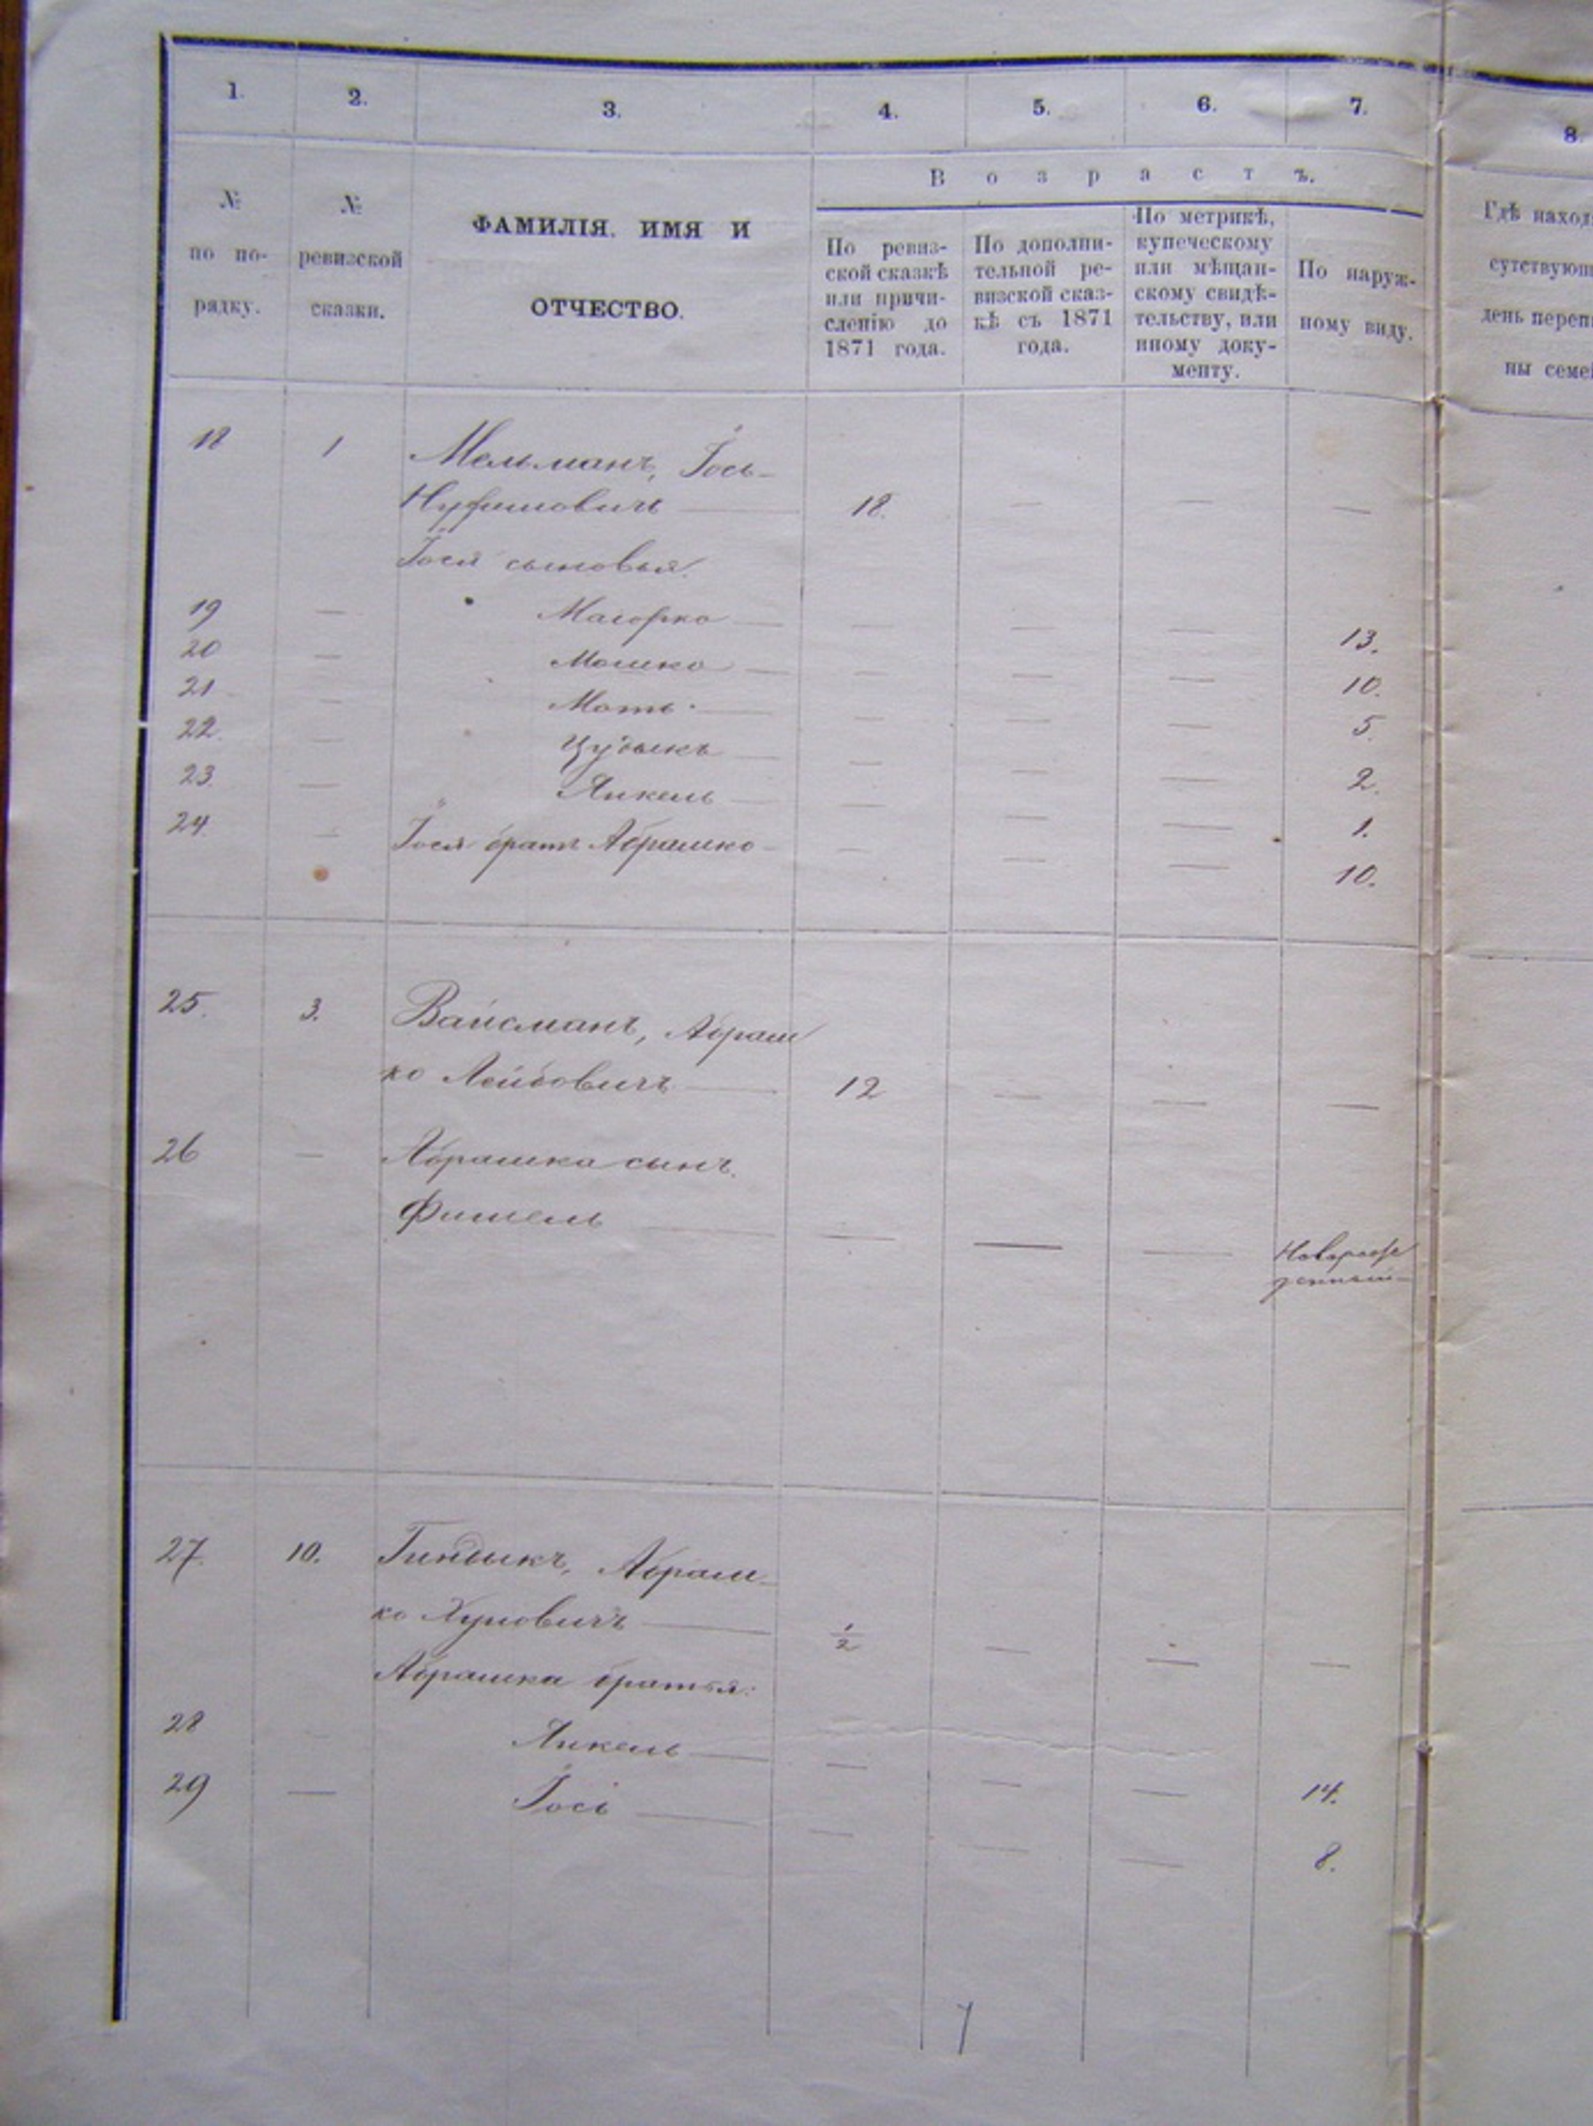 1. 2. 3. 4. 5. 6. 7. 8.
В о з р а с т ъ.
№
по по-
рядку.
№
ревизской
сказки.
ФАМИЛІЯ. ИМЯ И
ОТЧЕСТВО.
По ревиз-
ской сказкѣ
или причи-
сленію до
1871 года.
По дополни-
тельной ре-
визской сказ-
кѣ съ 1871
года.
По метрикѣ,
купеческому
или мѣщан-
скому свидѣ-
тельству, или
иному доку-
менту.
По наруж-
ному виду.
Гдѣ наход
сутствующ
день переп
ны семе
18 1 Мельманъ, Іось
18. — — —
Іося сыновья.
19 — — — — 13.
20 — Мошко — — — — 10.
21 — Моть — — — — 5.
22. — Цудыкъ — — — — 2.
23. — Янкель — — — — 1.
24. — Іося братъ Абрашко — — — 10.
25. 3. Вайсманъ, Абраш
ко Лейбовичъ — 12 — — —
26 — Абрашка сынъ.
Фишель — — — — Поворож
денный
27. 10. Гиндыкъ, Абраш-
ко Хуновичъ — 1/2 — — —
Абрашка братья:
28 Янкель — — — — 14.
29 — Іось — — — — 8.